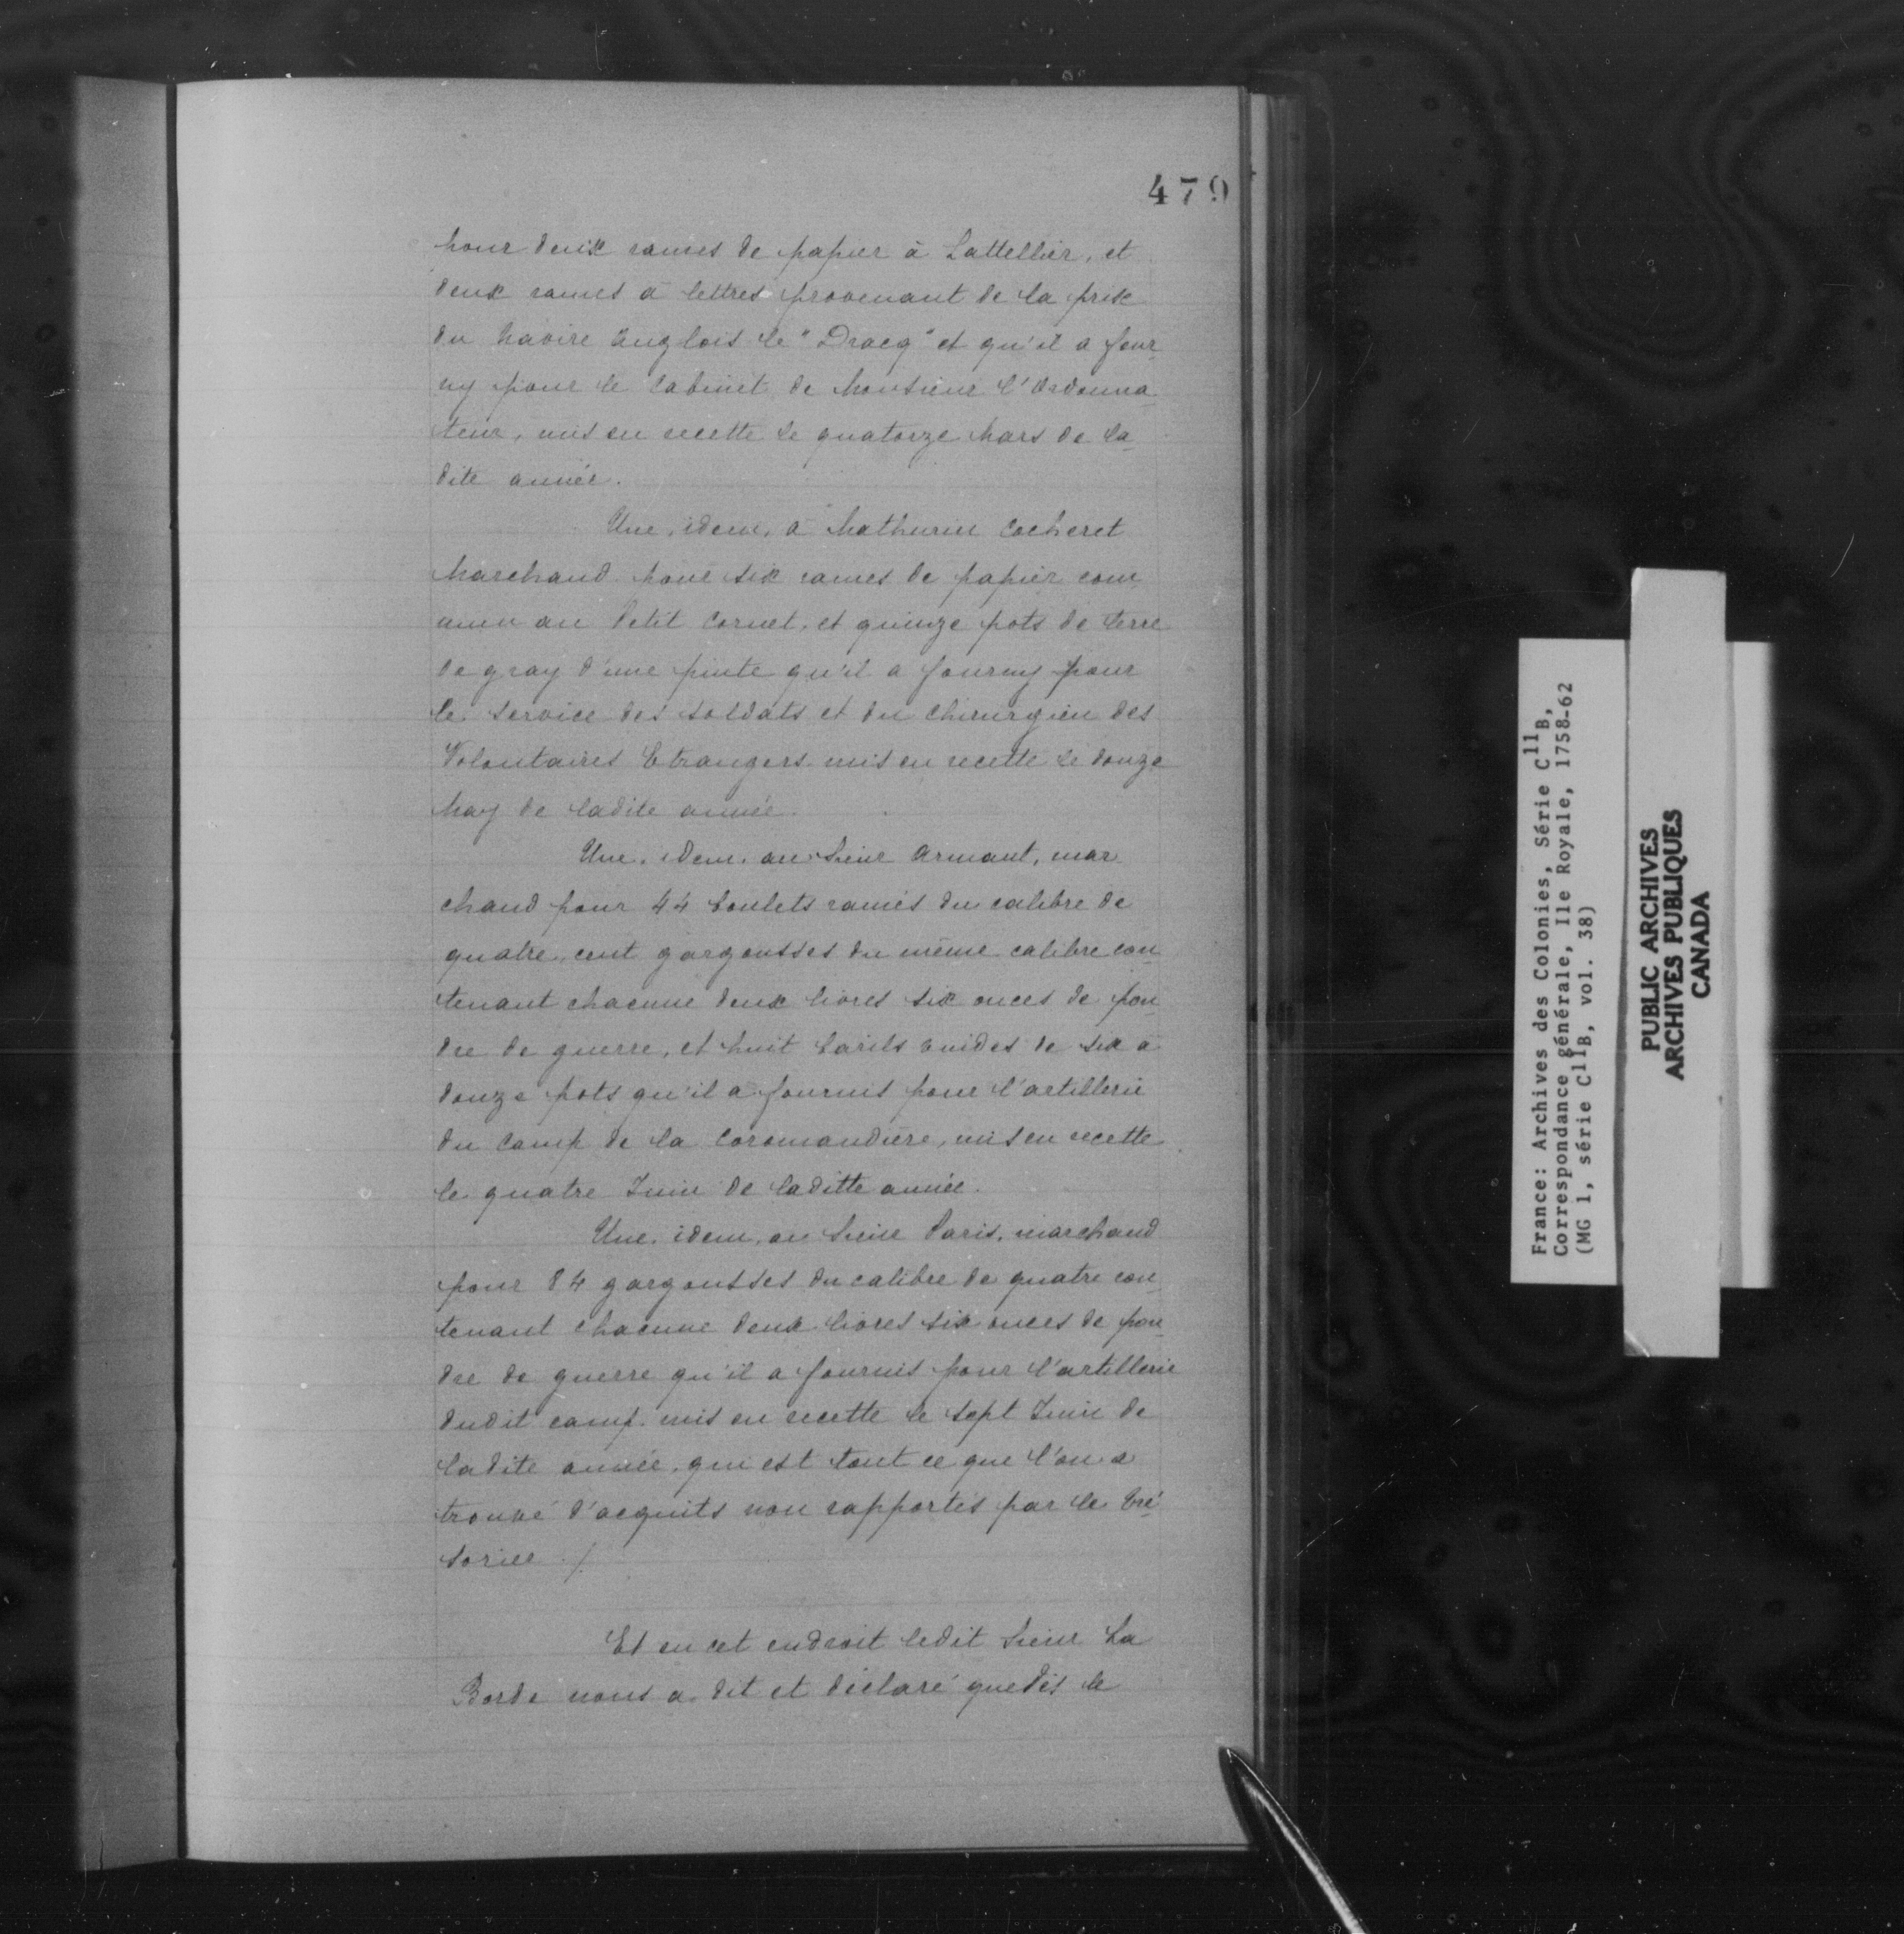 479
pour deux rames de papier à Lattellier, et
deux rames à lettres provenant de la prise
du navire anglois le "Dracq" et qu'il a four
ny pour le cabinet de Monsieur l'Ordonna
teur, mis en recette le quatorze Mars de la
dite année.
Une, idem, à Mathurin Cocheret
Marchand pour six rames de papier com
mun au Petit Cornet, et quinze pots de terre
de gray d'une pinte qu'il a fourny pour
le service des soldats et du chirurgien des
Volontaires Etrangers mis en recette le douze
May de ladite année.
Une, idem, au Sieur Armant, mar
chand pour 44 boulets ramés du calibre de
quatre, cent gargousses du même calibre con
tenant chacune deux livres six onces de pou
dre de guerre, et huit barils vuides de six à
douze pots qu'il a fournis pour l'artillerie
du Camp de la Coromandière, mis en recette
le quatre Juin de laditte année.
Une, idem, au Sieur Paris, marchand
pour 84 gargousses du calibre de quatre con
tenant chacune deux livres six onces de pou
dre de guerre qu'il a fournis pour l'artillerie
dudit camp. mis en recette le sept Juin de
ladite année, qui est tout ce que l'on a
trouvé d'acquits non rapportés par le tré
sorier ./.
Et en cet endroit ledit Sieur La
Borde nous a dit et déclaré que dès le
France: Archives des Colonies, Série C11B,
Correspondance générale, Ile Royale, 1758-62
(MG 1, série C11B, vol. 38)
PUBLIC ARCHIVES
ARCHIVES PUBLIQUES
CANADA